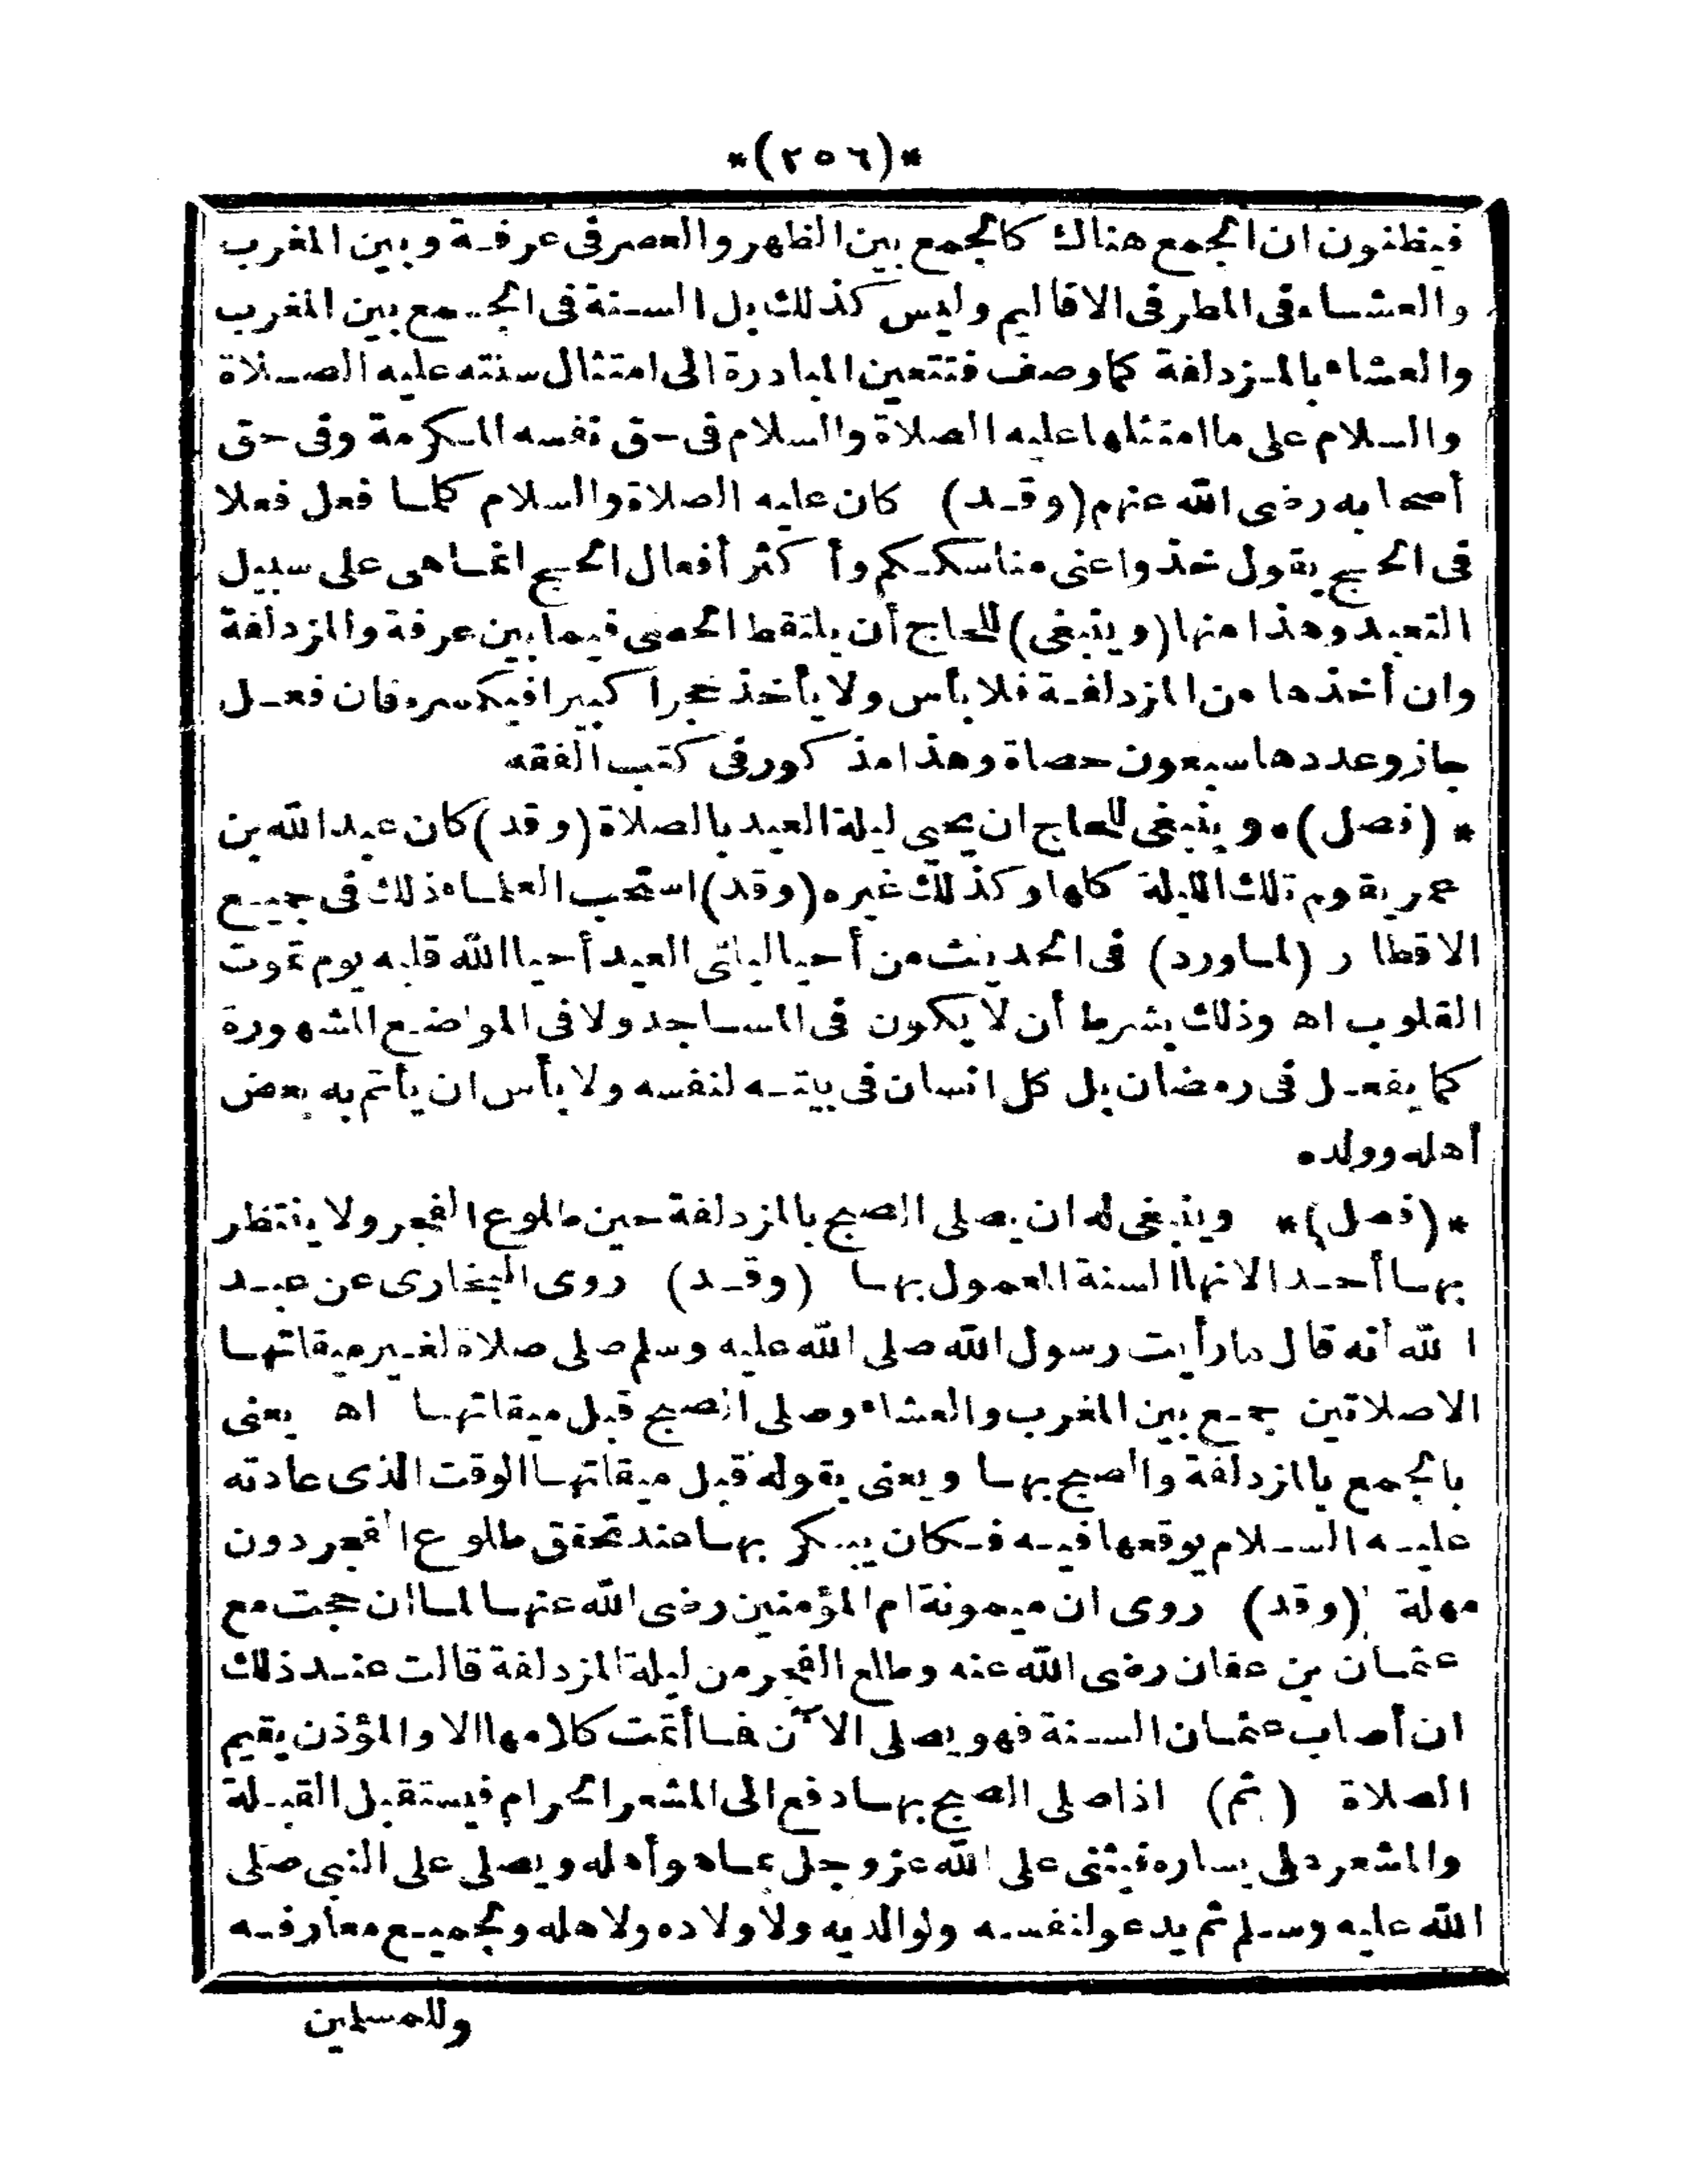 *(٢٥٦)*
فيظنون ان الجمع هناك كالجمع بين الظهر والعصر فى عرفة وبين المغرب
والعشاء فى المطر فى الاقاليم وليس كذلك بل السنة فى الجمع بين المغرب
والعشاء بالمزدلفة كما وصف فتتعين المبادرة الى امتثال سنته عليه الصلاة
والسلام على ما امتثلها عليه الصلاة والسلام فى حق نفسه المكرمة وفى حق
أصحابه رضى الله عنهم (وقد) كان عليه الصلاة والسلام كلما فعل فعلا
فى الحج يقول خذوا عنى مناسككم وأكثر أفعال الحج انما هى على سبيل
التعبد وهذا منها (وينبغى) للحاج أن يلتقط الحصى فيما بين عرفة والمزدلفة
وان أخذها من المزدلفة فلا بأس ولا يأخذ حجرا كبيرا فيكسره فان فعل
جاز وعددها سبعون حصاة وهذا مذكور فى كتب الفقه
* (فصل)* وينبغى للحاج ان يحيى ليلة العيد بالصلاة (وقد) كان عبد الله بن
عمر يقوم تلك الليلة كلها وكذلك غيره (وقد) استحب العلماء ذلك فى جميع
الاقطار (لما ورد) فى الحديث من أحيا ليلتى العيد أحيا الله قلبه يوم تموت
القلوب اه وذلك بشرط أن لا يكون فى المساجد ولا فى المواضع المشهورة
كما يفعل فى رمضان بل كل انسان فى بيته لنفسه ولا بأس ان يأتم به بعض
أهله وولده
*(فصل)* وينبغى له ان يصلى الصبح بالمزدلفة حين طلوع الفجر ولا ينتظر
بها أحدا لانها السنة المعمول بها (وقد) روى البخارى عن عبد
الله أنه قال ما رأيت رسول الله صلى الله عليه وسلم صلى صلاة لغير ميقاتها
الا صلاتين جمع بين المغرب والعشاء وصلى الصبح قبل ميقاتها اه يعنى
بالجمع بالمزدلفة والصبح بها ويعنى بقوله قبل ميقاتها الوقت الذى عادته
عليه السلام يوقعها فيه فكان يبكر بها عند تحقق طلوع الفجر دون
مهلة (وقد) روى ان ميمونة ام المؤمنين رضى الله عنها لما ان حجت مع
عثمان بن عفان رضى الله عنه وطلع الفجر من ليلة المزدلفة قالت عند ذلك
ان أصاب عثمان السنة فهو يصلى الآن فما أتمت كلامها الا والمؤذن يقيم
الصلاة (ثم) اذا صلى الصبح بها دفع الى المشعر الحرام فيستقبل القبلة
والمشعر على يساره فيثنى على الله عز وجل بما هو أهله ويصلى على النبى صلى
الله عليه وسلم ثم يدعو لنفسه ولوالديه ولأولاده ولاهله ولجميع معارفه
وللمسلمين